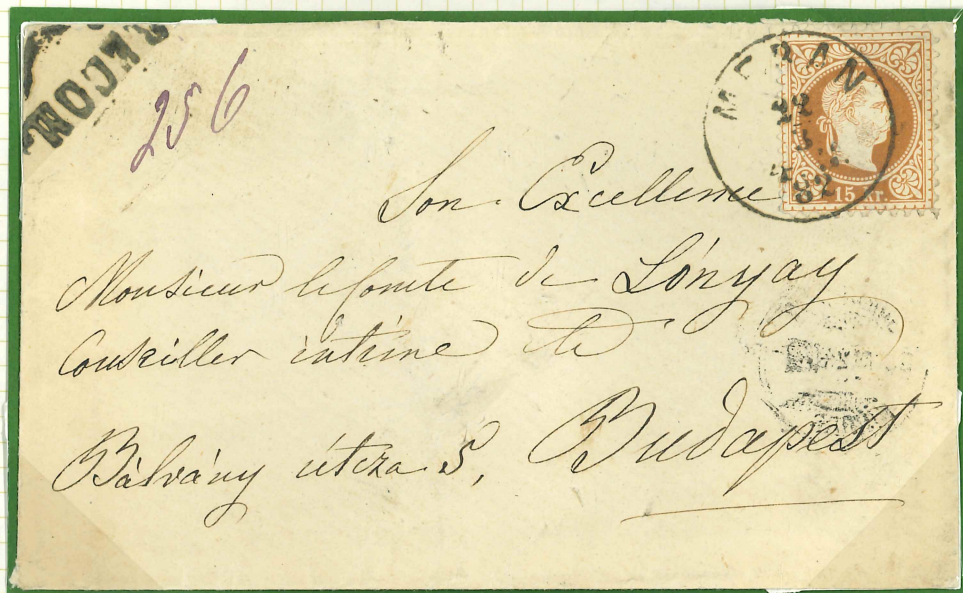 RECOM
256
MERAN
82
15 kr.
Son Excellence
Monsieur le Comte de Lónyay
Conseiller intime &c
Bálvány útcza 5,
Budapest